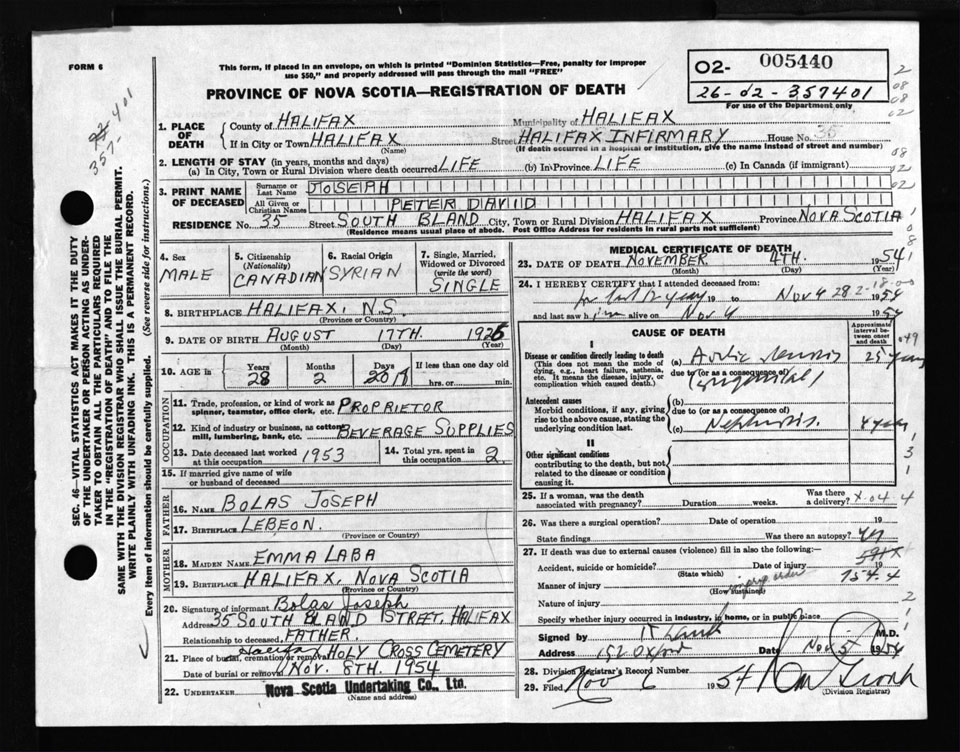 FORM 6
This form, if placed in an envelope, on which is printed "Dominion Statistics—Free, penalty for improper
use $50," and properly addressed will pass through the mail "FREE"
O2- 005440
26-02-357401
For use of the Department only
PROVINCE OF NOVA SCOTIA—REGISTRATION OF DEATH
357-401
1. PLACE OF DEATH
County of HALIFAX Municipality of HALIFAX
If in City or Town HALIFAX Street HALIFAX INFIRMARY House No. 35
(Name) (If death occurred in a hospital or institution, give the name instead of street and number)
2. LENGTH OF STAY (in years, months and days)
(a) In City, Town or Rural Division where death occurred LIFE (b) In Province LIFE (c) In Canada (if immigrant)
3. PRINT NAME OF DECEASED
Surname or Last Name JOSEPH
All Given or Christian Names PETER DAVID
RESIDENCE No. 35 Street SOUTH BLAND City, Town or Rural Division HALIFAX Province NOVA SCOTIA
(Residence means usual place of abode. Post Office Address for residents in rural parts not sufficient)
4. Sex MALE
5. Citizenship (Nationality) CANADIAN
6. Racial Origin SYRIAN
7. Single, Married, Widowed or Divorced (write the word) SINGLE
8. BIRTHPLACE HALIFAX, N.S.
(Province or Country)
9. DATE OF BIRTH AUGUST 17TH. 1926
(Month) (Day) (Year)
10. AGE in Years 28 Months 2 Days 18 If less than one day hrs. or min.
OCCUPATION
11. Trade, profession, or kind of work as spinner, teamster, office clerk, etc. PROPRIETOR
12. Kind of industry or business, as cotton mill, lumbering, bank, etc. BEVERAGE SUPPLIES
13. Date deceased last worked at this occupation 1953
14. Total yrs. spent in this occupation 2
15. If married give name of wife or husband of deceased
FATHER
16. NAME BOLAS JOSEPH
17. BIRTHPLACE LEBEON.
(Province or Country)
MOTHER
18. MAIDEN NAME EMMA LABA
19. BIRTHPLACE HALIFAX, NOVA SCOTIA
(Province or Country)
20. Signature of informant Bolas Joseph
Address 35 SOUTH BLAND STREET, HALIFAX
Relationship to deceased FATHER.
21. Place of burial, cremation or removal Halifax HOLY CROSS CEMETERY
Date of burial or removal NOV. 8TH. 1954
22. UNDERTAKER Nova Scotia Undertaking Co., Ltd.
(Name and address)
MEDICAL CERTIFICATE OF DEATH
23. DATE OF DEATH NOVEMBER 4TH. 1954
(Month) (Day) (Year)
24. I HEREBY CERTIFY that I attended deceased from:
for last 12 years 19 to Nov 4 1954
and last saw him alive on Nov 4 1954
CAUSE OF DEATH
Approximate interval between onset and death
I
Disease or condition directly leading to death
(This does not mean the mode of dying, e.g., heart failure, asthenia, etc. It means the disease, injury, or complication which caused death.)
(a) Aortic stenosis 25 years
due to (or as a consequence of)
(congenital)
Antecedent causes
Morbid conditions, if any, giving rise to the above cause, stating the underlying condition last.
(b)
due to (or as a consequence of)
(c) Nephrosis. 4 years
II
Other significant conditions
contributing to the death, but not related to the disease or condition causing it.
25. If a woman, was the death associated with pregnancy? Duration weeks. Was there a delivery?
26. Was there a surgical operation? Date of operation 19
State findings Was there an autopsy?
27. If death was due to external causes (violence) fill in also the following:—
Accident, suicide or homicide? Date of injury 19
(State which)
Manner of injury
(How sustained)
Nature of injury
Specify whether injury occurred in industry, in home, or in public place
Signed by M.D.
Address 192 Oxford Date Nov 5 1954
28. Division Registrar's Record Number
29. Filed Nov 6 1954
(Division Registrar)
SEC. 46—VITAL STATISTICS ACT MAKES IT THE DUTY
OF THE UNDERTAKER OR PERSON ACTING AS UNDER-
TAKER TO OBTAIN ALL THE PARTICULARS REQUIRED
IN THE "REGISTRATION OF DEATH" AND TO FILE THE
SAME WITH THE DIVISION REGISTRAR WHO SHALL ISSUE THE BURIAL PERMIT.
WRITE PLAINLY WITH UNFADING INK. THIS IS A PERMANENT RECORD.
Every item of information should be carefully supplied. (See reverse side for instructions.)